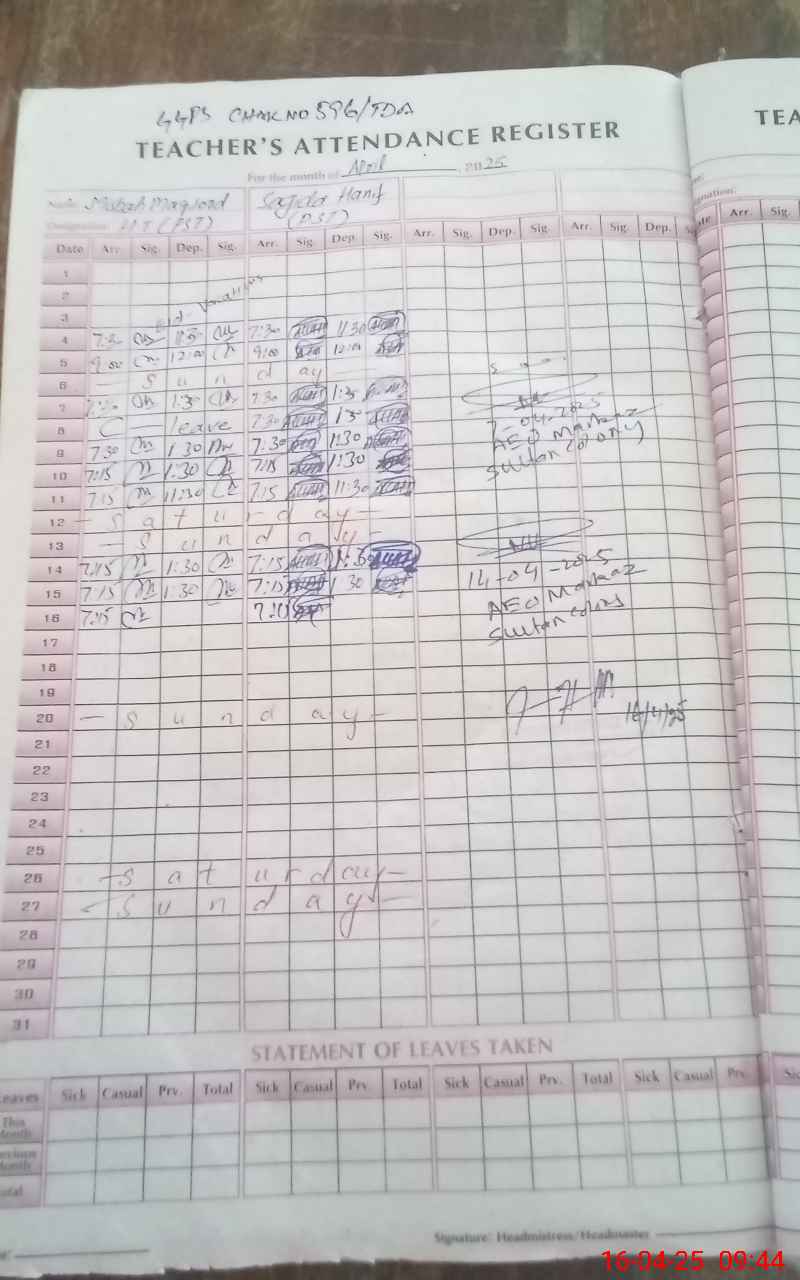 GGPS CHAK NO 596/TDA
TEACHER'S ATTENDANCE REGISTER
TEA
For the month of April, 2025
Name: Misbah Maqsood Sajida Hanif
Designation: HT (PST) (PST)
Date Arr. Sig. Dep. Sig. Arr. Sig. Dep. Sig. Arr. Sig. Dep. Sig. Arr. Sig. Dep. Arr. Sig.
1
2
3
Eid Vacations
4 7:30 11:30 7:30 11:30
5 9:00 12:00 9:00 12:00
6 — S u n d a y
7 1:30 7:30 1:30
8 C leave 7:30 1:30
9 7:30 1:30 7:30 1:30
10 7:15 1:30 7:15 1:30
11 7:15 11:30 7:15 11:30
12 — S a t u r d a y —
13 — S u n d a y —
14 7:15 1:30 7:15 1:30
15 7:15 1:30 7:15 1:30
16 7:15
17
18
19
20 — S u n d a y —
21
22
23
24
25
26 — S a t u r d a y —
27 — S u n d a y —
28
29
30
31
7-04-2025
AEO Markaz
Sultan Colony
14-04-2025
AEO Markaz
Sultan
16/4/25
STATEMENT OF LEAVES TAKEN
Leaves Sick Casual Prv. Total Sick Casual Prv. Total Sick Casual Prv. Total Sick Casual Prv.
This Month
Previous Month
Total
Signature: Headmistress/Headmaster
16-04-25 09:44